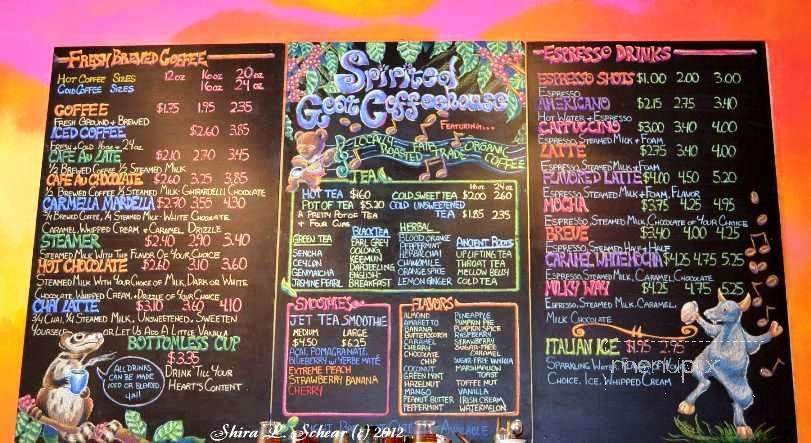 FRESH BREWED COFFEE
HOT COFFEE SIZES 12oz 16oz 20oz
COLD COFFEE SIZES 16oz 24oz
COFFEE $1.75 1.95 2.35
FRESH GROUND + BREWED
ICED COFFEE $2.60 3.85
FRESH + COLD 16oz - 24oz
CAFE AU LATE $2.10 2.70 3.45
1/2 BREWED COFFEE 1/2 STEAMED MILK
CAFE AU CHOCOLATE $2.60 3.25 3.85
1/2 BREWED COFFEE 1/2 STEAMED MILK-GHIRARDELLI CHOCOLATE
CARMELLA MARDELLA $2.70 3.55 4.30
3/4 BREWED COFFEE, 1/4 STEAMED MILK-WHITE CHOCOLATE
CARAMEL WHIPPED CREAM + CARAMEL DRIZZLE
STEAMER $2.40 2.90 3.40
STEAMED MILK WITH THE FLAVOR OF YOUR CHOICE
HOT CHOCOLATE $2.60 3.10 3.60
STEAMED MILK WITH YOUR CHOICE OF MILK, DARK OR WHITE
CHOCOLATE, WHIPPED CREAM + DRIZZLE OF YOUR CHOICE
CHAI LATTE $3.10 3.60 4.10
3/4 CHAI, 1/4 STEAMED MILK, UNSWEETENED, SWEETEN
YOURSELF OR LET US ADD A LITTLE VANILLA
BOTTOMLESS CUP
$3.35
DRINK TILL YOUR
HEARTS CONTENT
ALL DRINKS
CAN BE MADE
ICED OR BLENDED,
YAY!
Spirited
Goat Coffeehouse
FEATURING...
LOCALLY ROASTED FAIR TRADE ORGANIC COFFEE
TEA
16oz 24oz
HOT TEA $1.60 COLD SWEET TEA $2.00 2.60
POT OF TEA $5.20 COLD UNSWEETENED
A PRETTY POT OF TEA TEA $1.85 2.35
+ FOUR CUPS
GREEN TEA
SENCHA
CEYLON
GENMAICHA
JASMINE PEARL
BLACK TEA
EARL GREY
COLONEL
KEEMUN
DARJEELING
ENGLISH
BREAKFAST
HERBAL
BLOOD ORANGE
PEPPERMINT
HERBAL CHAI
CHAMOMILE
ORANGE SPICE
LEMON GINGER
ANCIENT ROOTS
UPLIFTING TEA
THROAT TEA
MELLOW BELLY
COLD TEA
SMOOTHIES
JET TEA SMOOTHIE
MEDIUM LARGE
$4.50 $6.25
ACAI, POMAGRANATE,
BLUEBERRY W/ YERBE MATÉ
EXTREME PEACH
STRAWBERRY BANANA
CHERRY
FLAVORS
ALMOND
AMARETTO
BANANA
BUTTERSCOTCH
CARAMEL
CHERRY
CHOCOLATE
CHIP
COCONUT
GREEN MINT
HAZELNUT
MANGO
PEANUT BUTTER
PEPPERMINT
PINEAPPLE
PUMPKIN PIE
PUMPKIN SPICE
RASPBERRY
STRAWBERRY
SUGAR-FREE
CARAMEL
SUGAR FREE VANILLA
MARSHMALLOW
TOAST
TOFFEE NUT
VANILLA
IRISH CREAM
WATERMELON
AVAILABLE
ESPRESSO DRINKS
ESPRESSO SHOTS $1.00 2.00 3.00
ESPRESSO
AMERICANO $2.15 2.75 3.40
HOT WATER + ESPRESSO
CAPPUCCINO $3.00 3.40 4.00
ESPRESSO, STEAMED MILK + FOAM
LATTE $2.75 3.40 4.00
ESPRESSO, STEAMED MILK + FOAM
FLAVORED LATTE $4.00 4.50 5.20
ESPRESSO, STEAMED MILK + FOAM, FLAVOR
MOCHA $3.75 4.25 4.95
ESPRESSO, STEAMED MILK, CHOCOLATE OF YOUR CHOICE
BREVE $3.40 4.00 4.25
ESPRESSO, STEAMED HALF + HALF
CARAMEL WHITE MOCHA $4.25 4.75 5.25
ESPRESSO, STEAMED MILK, CARAMEL, CHOCOLATE
MILKY WAY $4.25 4.75 5.25
ESPRESSO, STEAMED MILK, CARAMEL,
MILK CHOCOLATE
ITALIAN ICE $1.95 2.95
SPARKLING
CHOICE, ICE, WHIPPED CREAM
menupix
Shira L. Schear (c) 2012